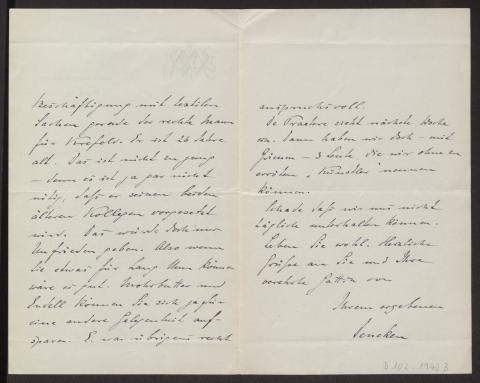 Beschäftigung mit textilen
Sachen gerade der rechte Mann
für Krefeld. Er ist 26 Jahre
alt. Das ist nicht zu jung
– denn es ist ja gar nicht
nötig, daß er seinen beiden
älteren Kollegen vorgesetzt
wird. Das würde doch nur
Unfrieden geben. Also wenn
Sie etwas für Lang thun können
wäre es gut. Mohrbutter und
Endell können Sie sich ja für
eine andere Gelegenheit auf-
sparen. E. war übrigens recht
anspruchsvoll.
De Praetere zieht nächste Woche
um. Dann haben wir doch – mit
Grimm – 3 Leute, die wir ohne zu
erröten „Künstler" nennen
können.
Schade daß wir uns nicht
täglich unterhalten können.
Leben Sie wohl. Herzliche
Grüße an Sie und Ihre
verehrte Gattin von
Ihrem ergebenen
Deneken